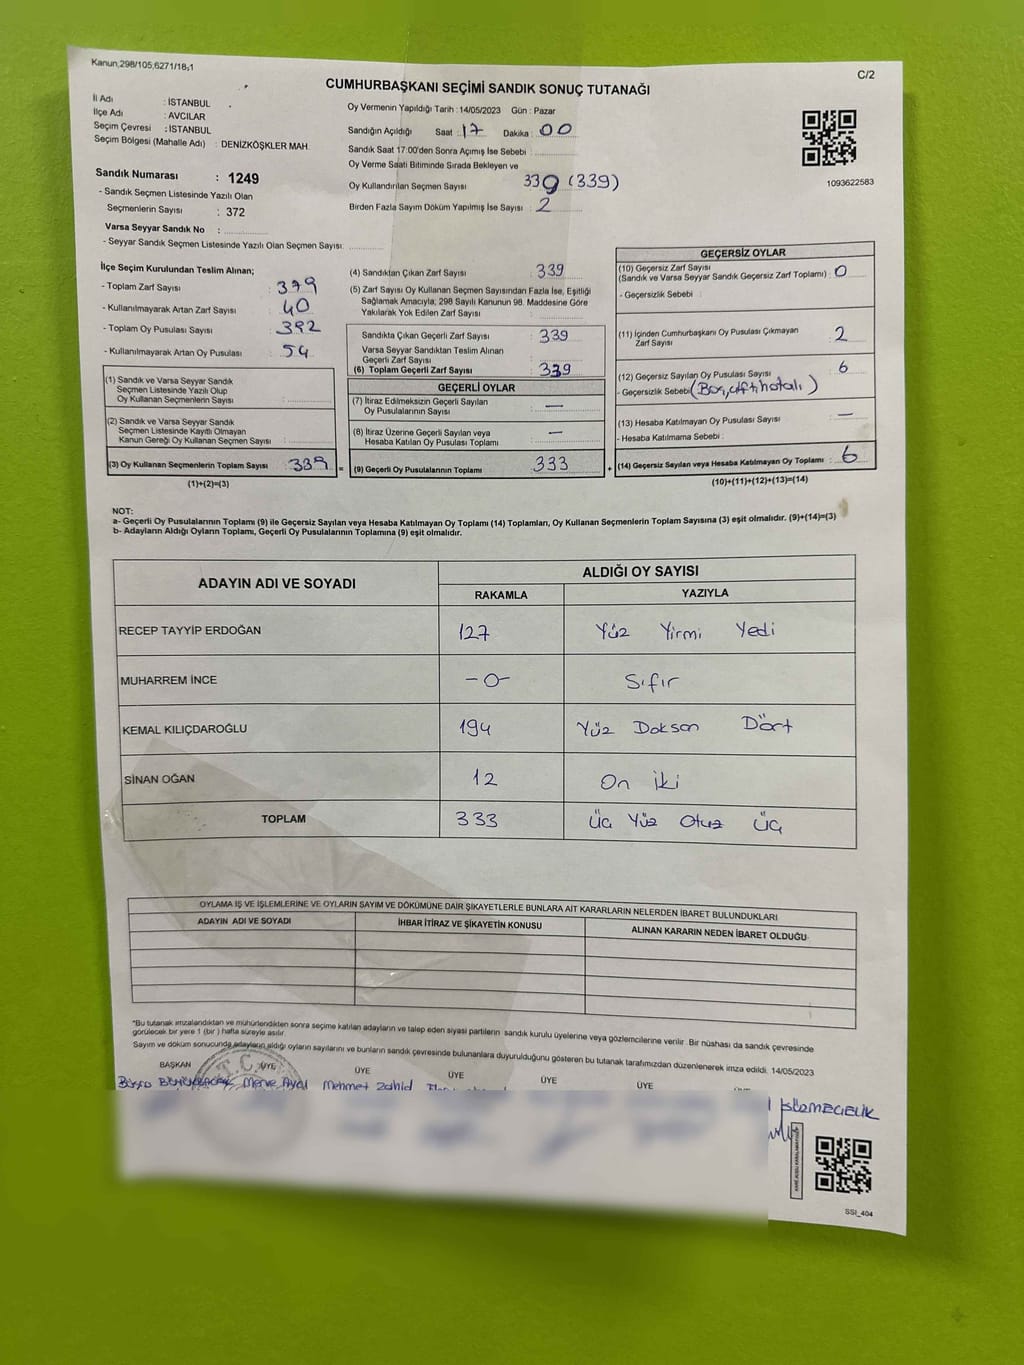 Kanun,298/105,6271/18,1
C/2
CUMHURBAŞKANI SEÇİMİ SANDIK SONUÇ TUTANAĞI
İl Adı : İSTANBUL
İlçe Adı : AVCILAR
Seçim Çevresi : İSTANBUL
Seçim Bölgesi (Mahalle Adı) : DENİZKÖŞKLER MAH.
Sandık Numarası : 1249
- Sandık Seçmen Listesinde Yazılı Olan
Seçmenlerin Sayısı : 372
Varsa Seyyar Sandık No :
- Seyyar Sandık Seçmen Listesinde Yazılı Olan Seçmen Sayısı:
Oy Vermenin Yapıldığı Tarih : 14/05/2023 Gün : Pazar
Sandığın Açıldığı Saat : 17 Dakika : 00
Sandık Saat 17:00'den Sonra Açımış İse Sebebi :
Oy Verme Saati Bitiminde Sırada Bekleyen ve
Oy Kullandırılan Seçmen Sayısı 339 (339)
Birden Fazla Sayım Döküm Yapılmış İse Sayısı : 2
1093622583
İlçe Seçim Kurulundan Teslim Alınan;
- Toplam Zarf Sayısı : 379
- Kullanılmayarak Artan Zarf Sayısı : 40
- Toplam Oy Pusulası Sayısı : 392
- Kullanılmayarak Artan Oy Pusulası : 54
(1) Sandık ve Varsa Seyyar Sandık
Seçmen Listesinde Yazılı Olup
Oy Kullanan Seçmenlerin Sayısı :
(2) Sandık ve Varsa Seyyar Sandık
Seçmen Listesinde Kayıtlı Olmayan
Kanun Gereği Oy Kullanan Seçmen Sayısı :
(3) Oy Kullanan Seçmenlerin Toplam Sayısı : 339 =
(1)+(2)=(3)
(4) Sandıktan Çıkan Zarf Sayısı : 339
(5) Zarf Sayısı Oy Kullanan Seçmen Sayısından Fazla İse, Eşitliği
Sağlamak Amacıyla; 298 Sayılı Kanunun 98. Maddesine Göre
Yakılarak Yok Edilen Zarf Sayısı :
Sandıkta Çıkan Geçerli Zarf Sayısı : 339
Varsa Seyyar Sandıktan Teslim Alınan
Geçerli Zarf Sayısı :
(6) Toplam Geçerli Zarf Sayısı : 339
GEÇERLİ OYLAR
(7) İtiraz Edilmeksizin Geçerli Sayılan
Oy Pusulalarının Sayısı : —
(8) İtiraz Üzerine Geçerli Sayılan veya
Hesaba Katılan Oy Pusulası Toplamı : —
(9) Geçerli Oy Pusulalarının Toplamı : 333 +
GEÇERSİZ OYLAR
(10) Geçersiz Zarf Sayısı
(Sandık ve Varsa Seyyar Sandık Geçersiz Zarf Toplamı) : 0
- Geçersizlik Sebebi :
(11) İçinden Cumhurbaşkanı Oy Pusulası Çıkmayan
Zarf Sayısı : 2
(12) Geçersiz Sayılan Oy Pusulası Sayısı : 6
- Geçersizlik Sebebi (Boş, çift, hatalı)
(13) Hesaba Katılmayan Oy Pusulası Sayısı : —
- Hesaba Katılmama Sebebi :
(14) Geçersiz Sayılan veya Hesaba Katılmayan Oy Toplamı : 6
(10)+(11)+(12)+(13)=(14)
NOT:
a- Geçerli Oy Pusulalarının Toplamı (9) ile Geçersiz Sayılan veya Hesaba Katılmayan Oy Toplamı (14) Toplamları, Oy Kullanan Seçmenlerin Toplam Sayısına (3) eşit olmalıdır. (9)+(14)=(3)
b- Adayların Aldığı Oyların Toplamı, Geçerli Oy Pusulalarının Toplamına (9) eşit olmalıdır.
ADAYIN ADI VE SOYADI ALDIĞI OY SAYISI
RAKAMLA YAZIYLA
RECEP TAYYİP ERDOĞAN 127 Yüz Yirmi Yedi
MUHARREM İNCE -0- Sıfır
KEMAL KILIÇDAROĞLU 194 Yüz Doksan Dört
SİNAN OĞAN 12 On iki
TOPLAM 333 Üç Yüz Otuz Üç
OYLAMA İŞ VE İŞLEMLERİNE VE OYLARIN SAYIM VE DÖKÜMÜNE DAİR ŞİKAYETLERLE BUNLARA AİT KARARLARIN NELERDEN İBARET BULUNDUKLARI
ADAYIN ADI VE SOYADI İHBAR İTİRAZ VE ŞİKAYETİN KONUSU ALINAN KARARIN NEDEN İBARET OLDUĞU
*Bu tutanak imzalandıktan ve mühürlendikten sonra seçime katılan adayların ve talep eden siyasi partilerin sandık kurulu üyelerine veya gözlemcilerine verilir. Bir nüshası da sandık çevresinde
görülecek bir yere 1 (bir ) hafta süreyle asılır.
Sayım ve döküm sonucunda adayların aldığı oyların sayılarını ve bunların sandık çevresinde bulunanlara duyurulduğunu gösteren bu tutanak tarafımızdan düzenlenerek imza edildi. 14/05/2023
BAŞKAN ÜYE ÜYE ÜYE ÜYE ÜYE
Merve Mehmet Zahid
T.C.
SSİ_404